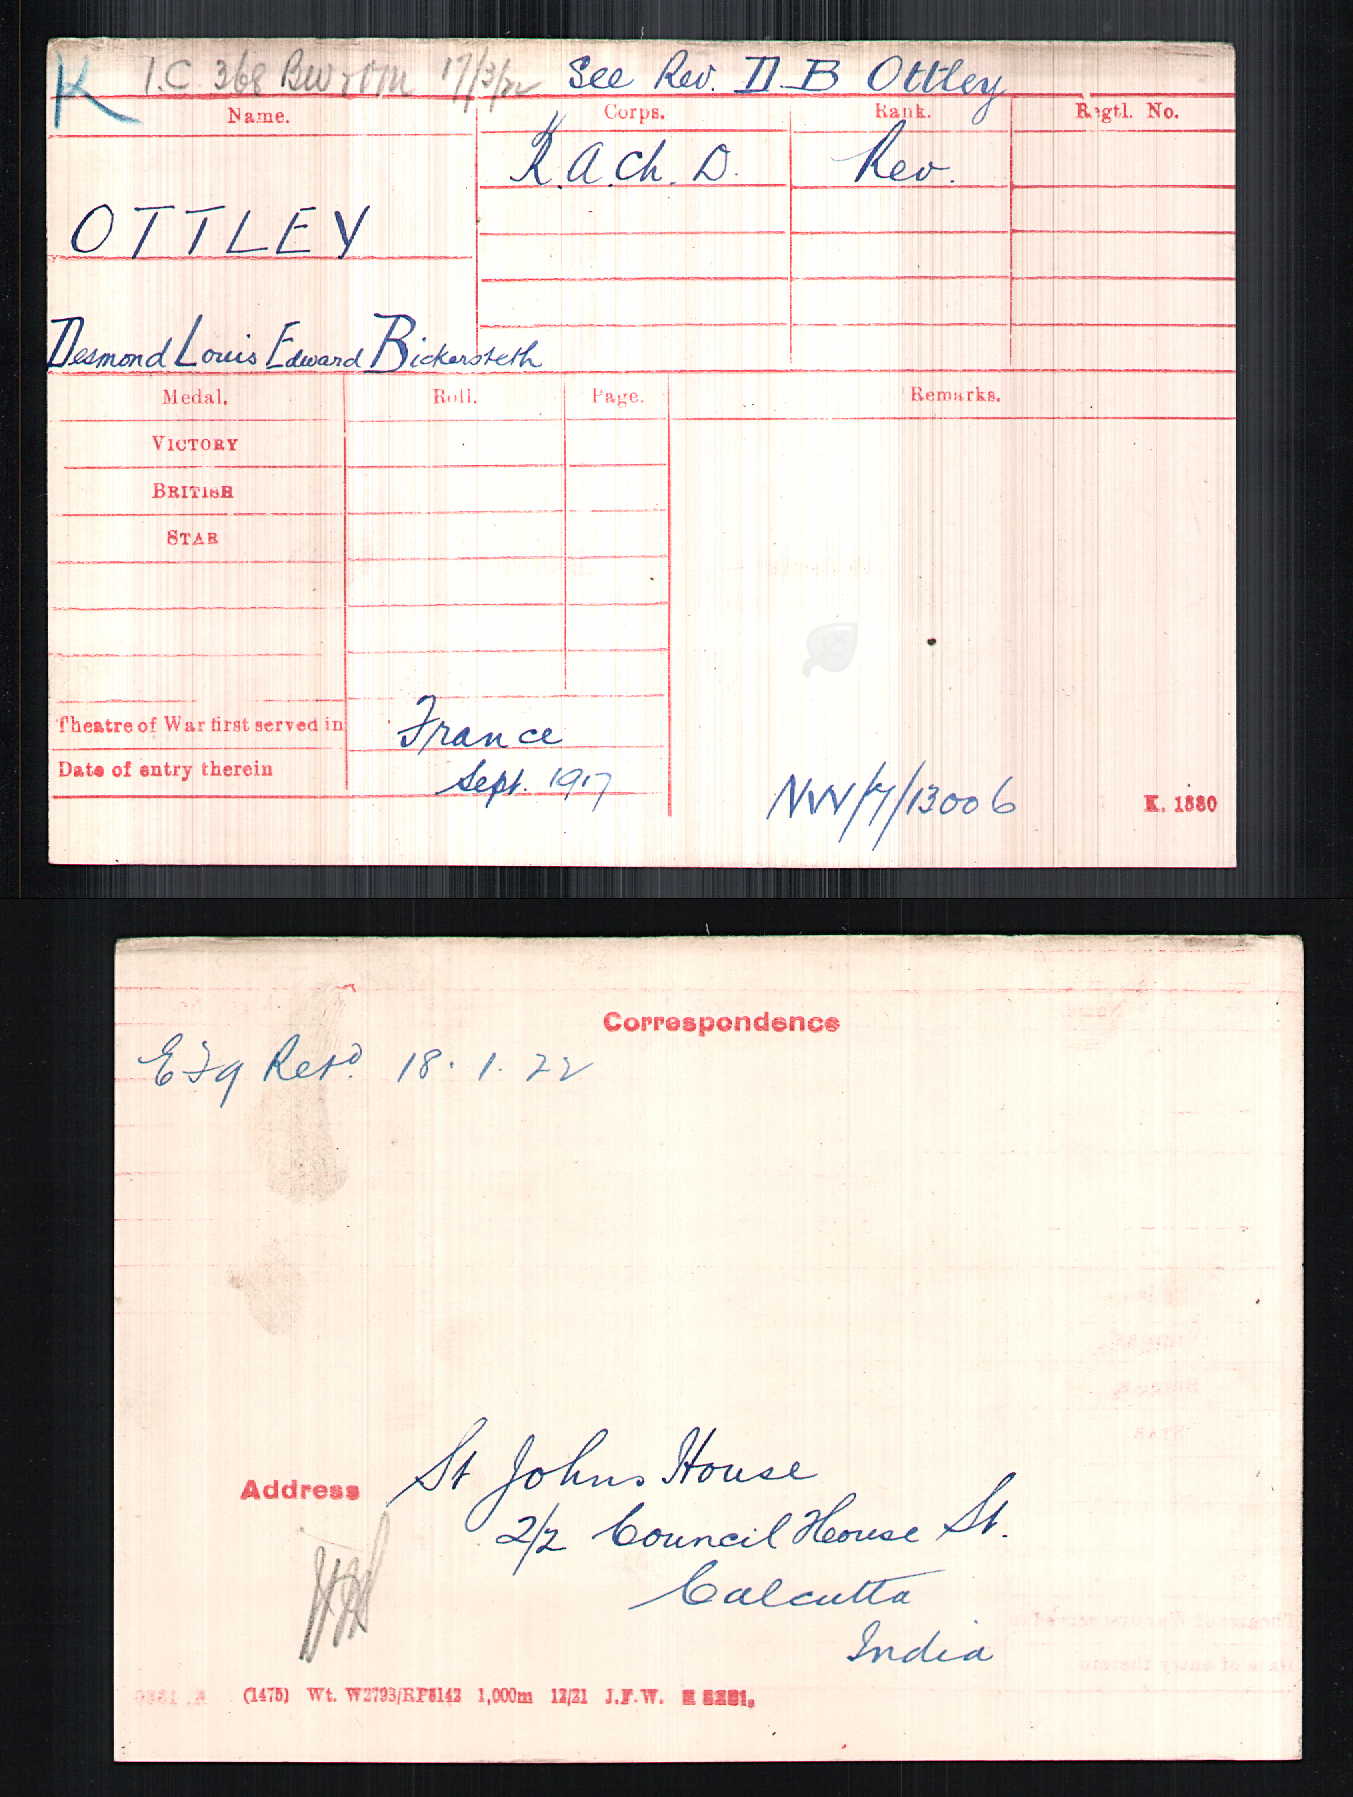 K I.C. 368 BW & VM 17/3/22 See Rev. D. B Ottley
Name. Corps. Rank. Regtl. No.
R.A.Ch.D. Rev.
OTTLEY
Desmond Louis Edward Bickersteth
Medal. Roll. Page. Remarks.
VICTORY
BRITISH
STAR
Theatre of War first served in France
Date of entry therein Sept. 1917
NW/7/13006 K. 1380
Correspondence
EF9 Retd. 18.1.22
Address St Johns House
2/2 Council House St.
Calcutta
India
(1475) Wt. W2793/RP5142 1,000m 12/21 J.F.W.